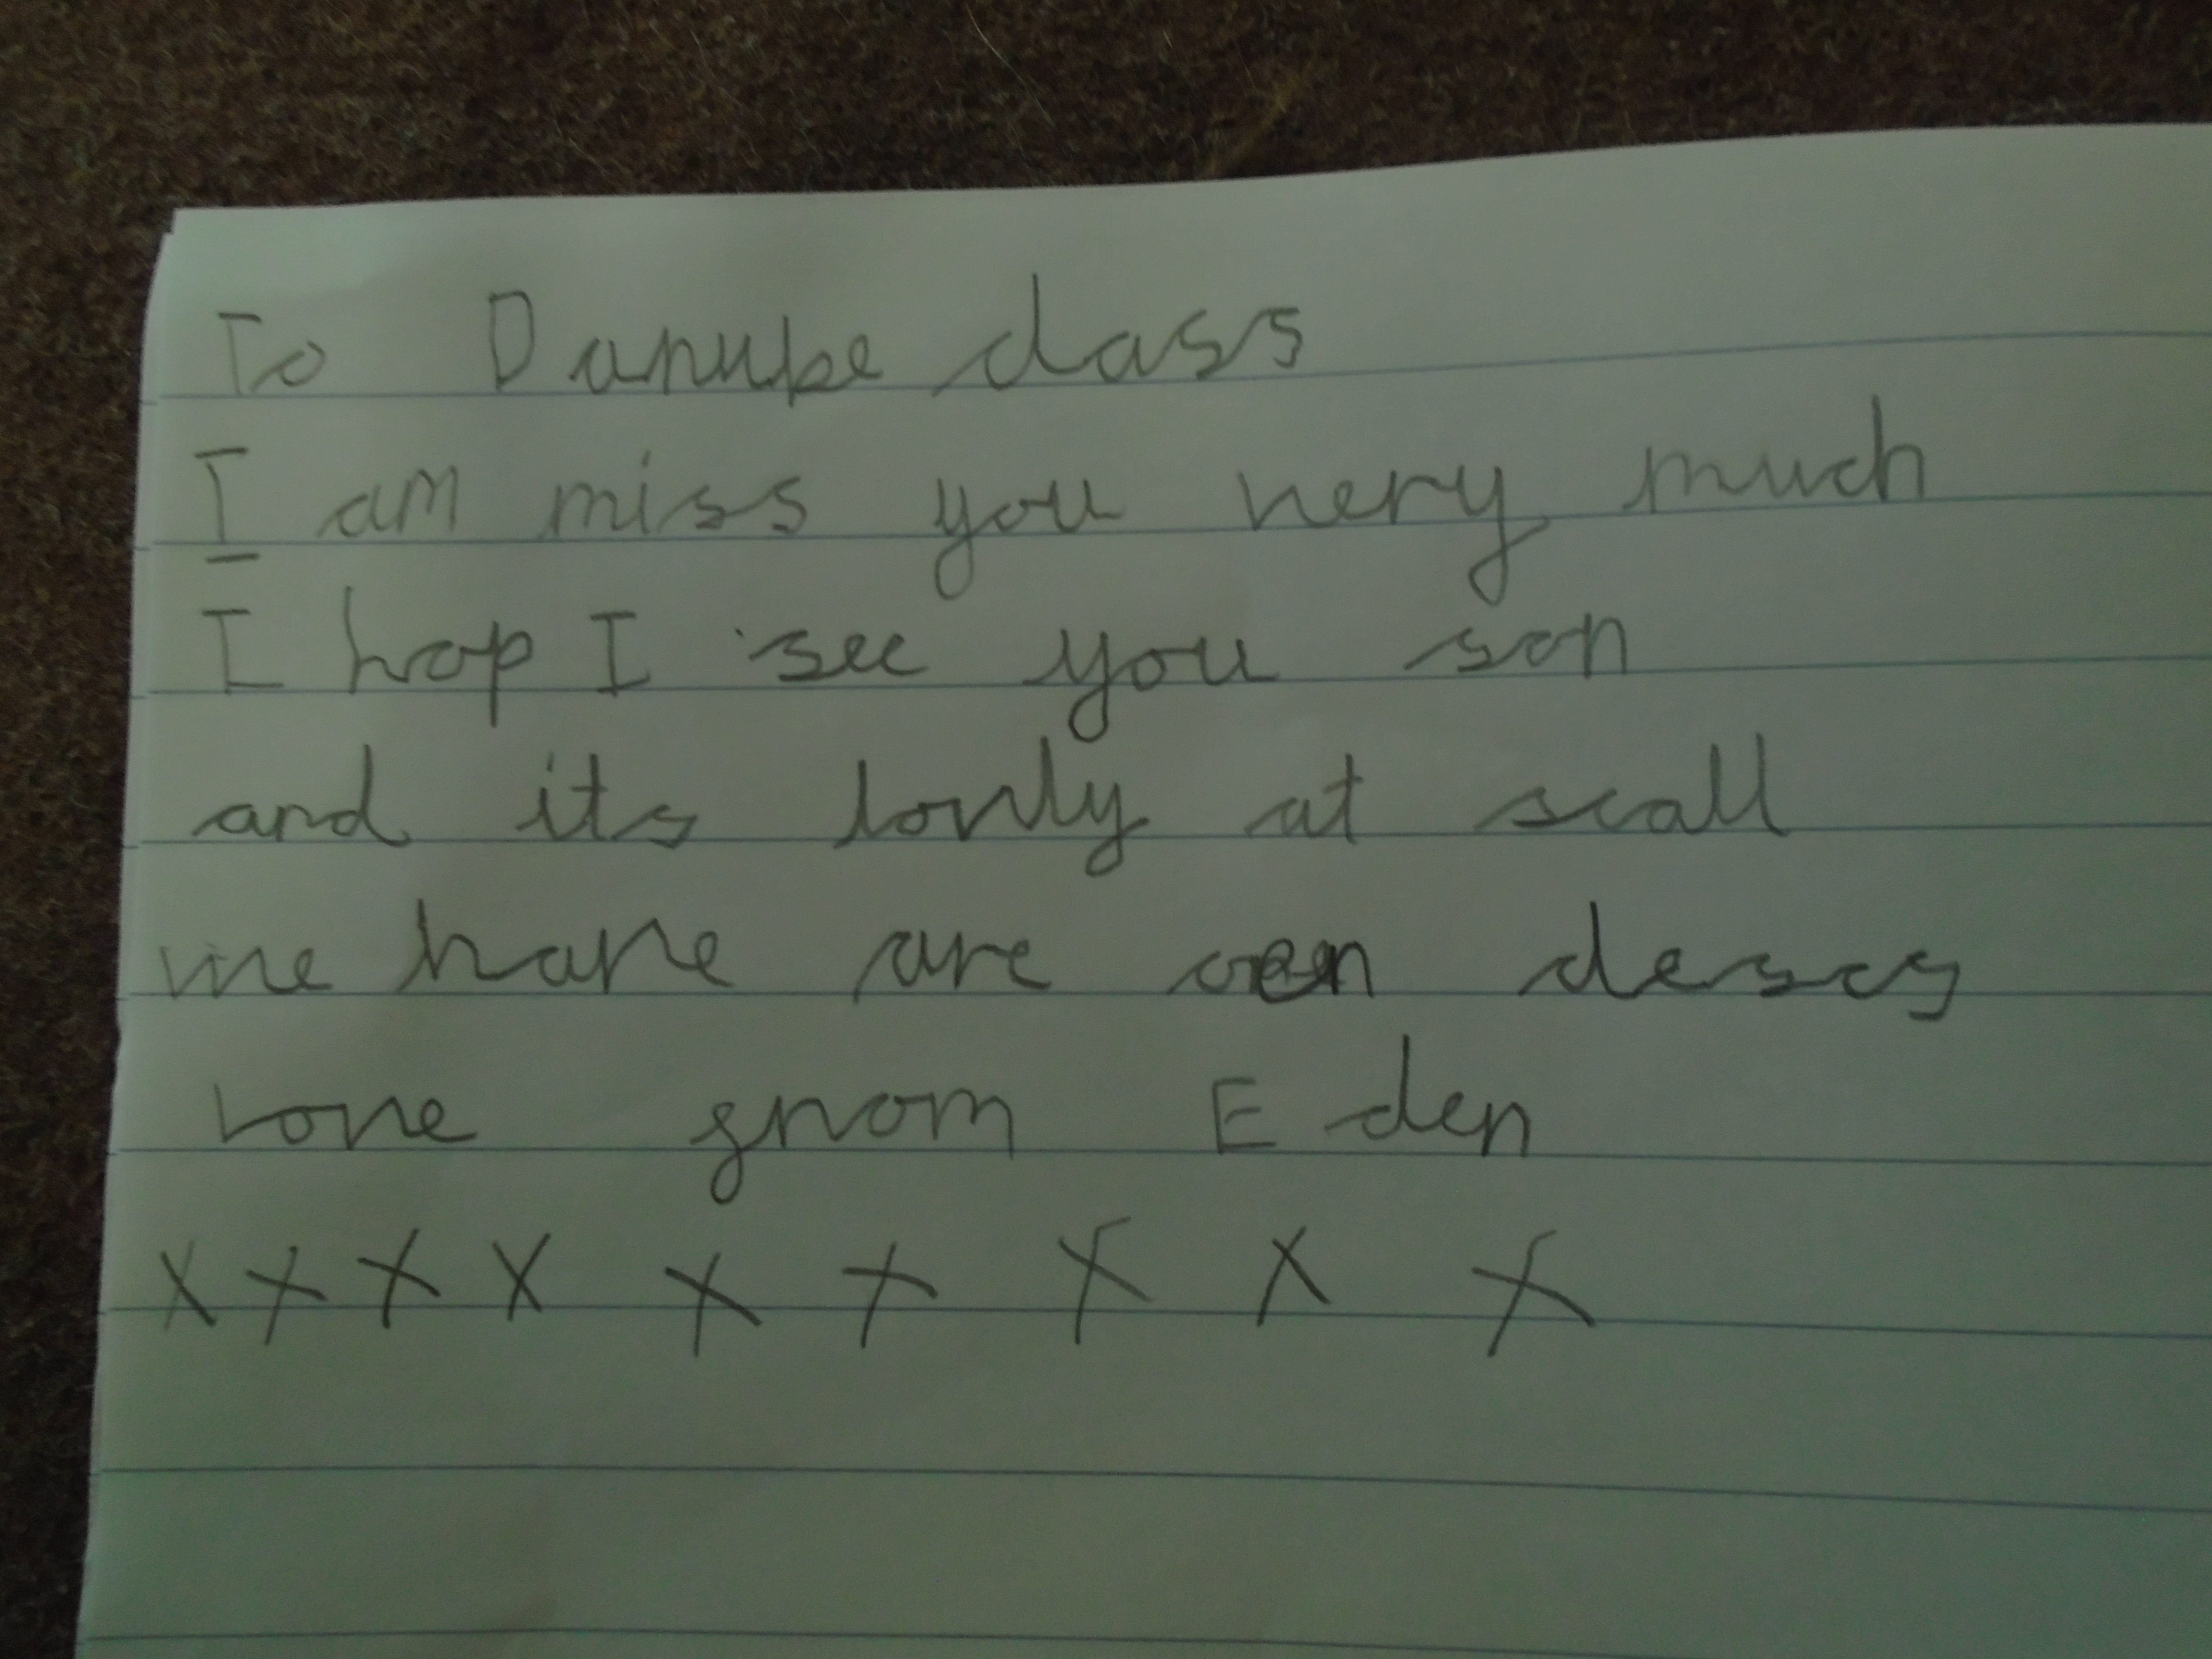 To Danube class
I am miss you very much
I hop I see you son
and its lonly at scall
we have are oen descs
Love from Eden
x x x x x x x x x